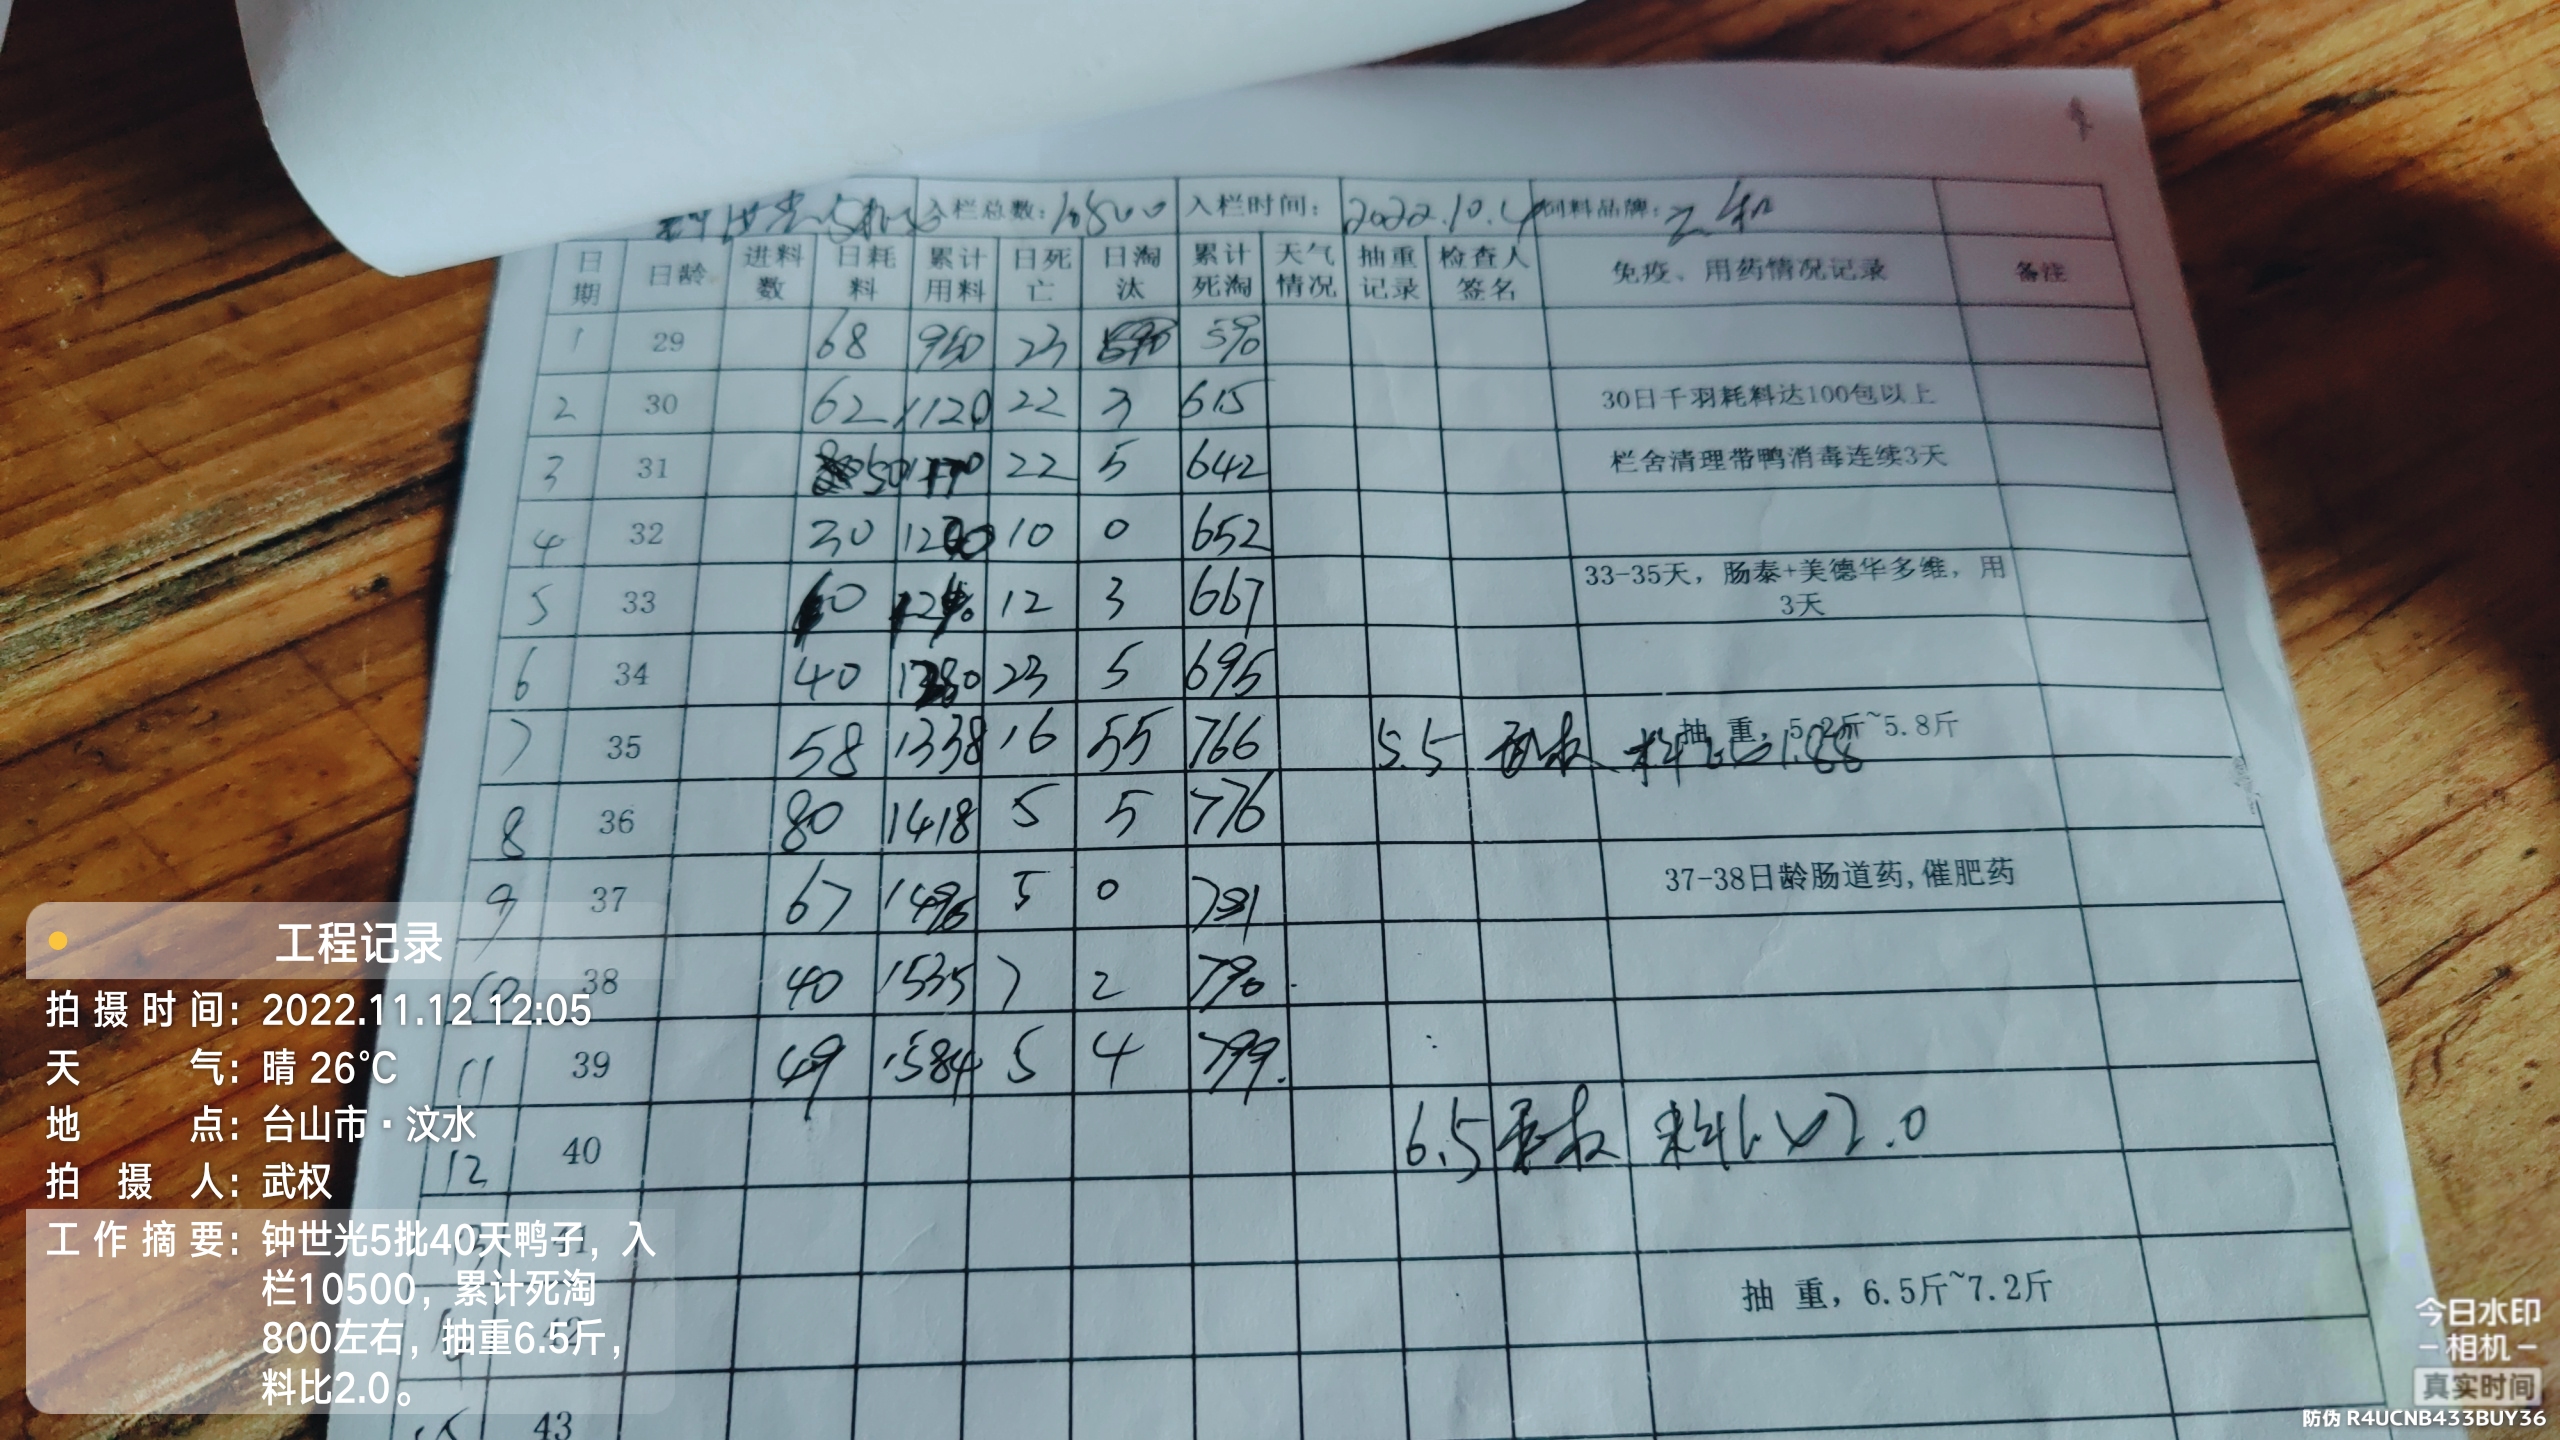 入栏总数：10500 入栏时间：2022.10.4 饲料品牌：
日期 日龄 进料数 日耗料 累计用料 日死亡 日淘汰 累计死淘 天气情况 抽重记录 检查人签名 免疫、用药情况记录 备注
1 29 68 950 23 590
2 30 62 1120 22 3 615 30日千羽耗料达100包以上
3 31 50 1170 22 5 642 栏舍清理带鸭消毒连续3天
4 32 30 1200 10 0 652
5 33 12 3 667 33-35天，肠泰+美德华多维，用3天
6 34 40 1280 23 5 695
7 35 58 1338 16 55 766 5.5 武权 抽 重，5.2斤~5.8斤 料比1.88
8 36 80 1418 5 5 776
9 37 67 5 0 781 37-38日龄肠道药,催肥药
10 38 40 1535 7 2 790
11 39 49 1584 5 4 799
12 40 6.5 武权 料比2.0
41
42 抽 重，6.5斤~7.2斤
43
工程记录
拍摄时间：2022.11.12 12:05
天气：晴 26℃
地点：台山市·汶水
拍摄人：武权
工作摘要：钟世光5批40天鸭子，入
栏10500，累计死淘
800左右，抽重6.5斤，
料比2.0。
今日水印
-相机-
真实时间
防伪 R4UCNB433BUY36